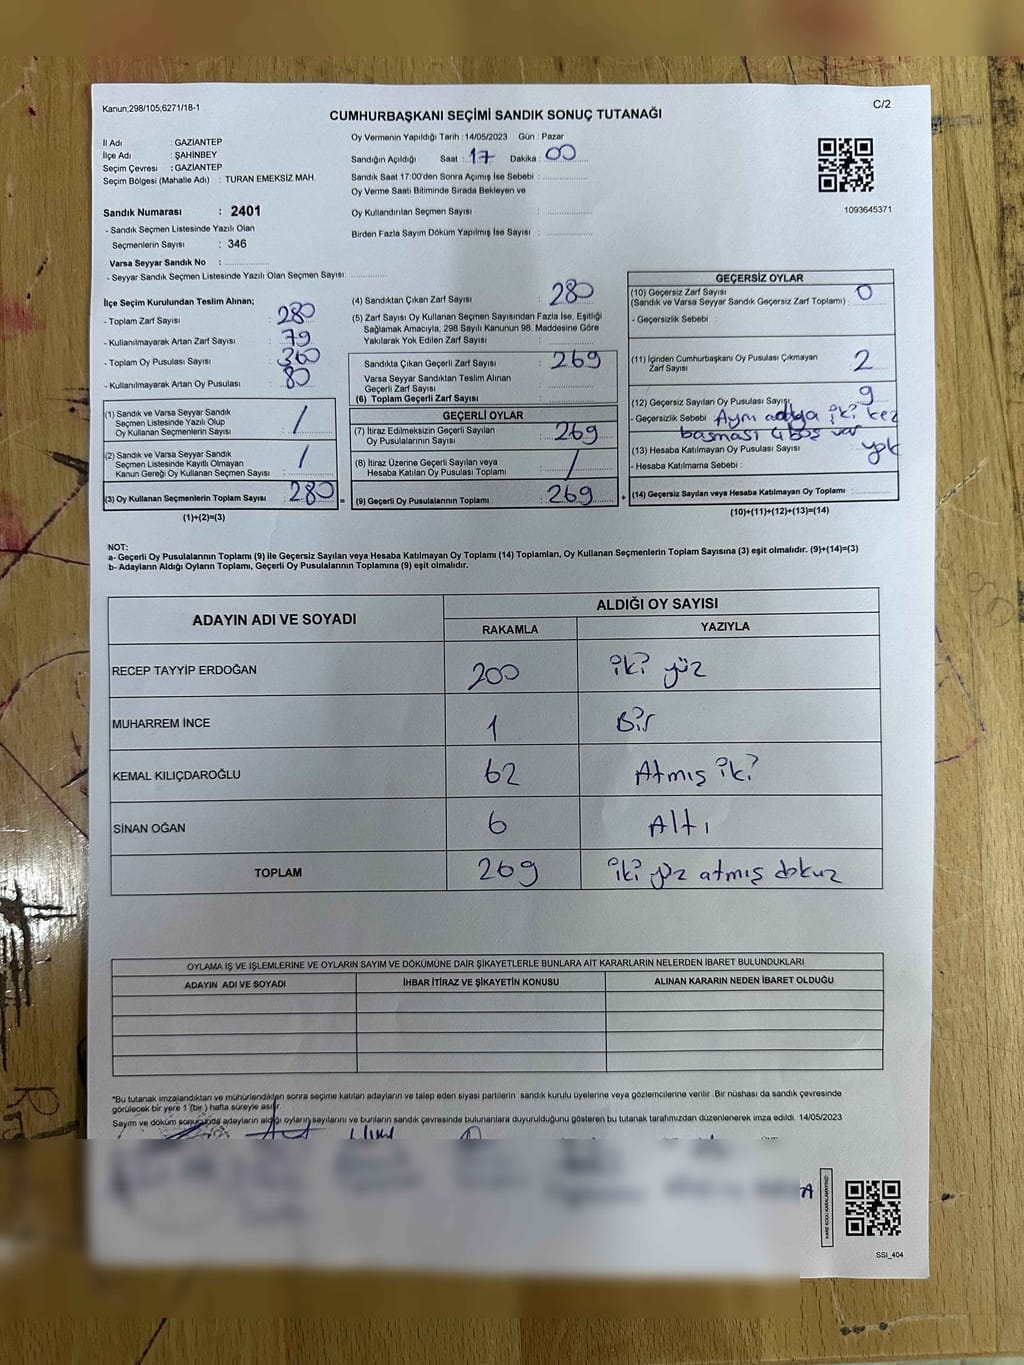 Kanun,298/105,6271/18-1
C/2
CUMHURBAŞKANI SEÇİMİ SANDIK SONUÇ TUTANAĞI
İl Adı : GAZIANTEP
İlçe Adı : ŞAHİNBEY
Seçim Çevresi : GAZIANTEP
Seçim Bölgesi (Mahalle Adı) : TURAN EMEKSİZ MAH.
Sandık Numarası : 2401
- Sandık Seçmen Listesinde Yazılı Olan
Seçmenlerin Sayısı : 346
Varsa Seyyar Sandık No :
- Seyyar Sandık Seçmen Listesinde Yazılı Olan Seçmen Sayısı:
Oy Vermenin Yapıldığı Tarih : 14/05/2023 Gün : Pazar
Sandığın Açıldığı Saat : 17 Dakika : 00
Sandık Saat 17:00'den Sonra Açımış İse Sebebi :
Oy Verme Saati Bitiminde Sırada Bekleyen ve
Oy Kullandırılan Seçmen Sayısı :
Birden Fazla Sayım Döküm Yapılmış İse Sayısı :
1093645371
İlçe Seçim Kurulundan Teslim Alınan;
- Toplam Zarf Sayısı : 280
- Kullanılmayarak Artan Zarf Sayısı : 79
- Toplam Oy Pusulası Sayısı : 360
- Kullanılmayarak Artan Oy Pusulası : 80
(1) Sandık ve Varsa Seyyar Sandık
Seçmen Listesinde Yazılı Olup
Oy Kullanan Seçmenlerin Sayısı : /
(2) Sandık ve Varsa Seyyar Sandık
Seçmen Listesinde Kayıtlı Olmayan
Kanun Gereği Oy Kullanan Seçmen Sayısı : /
(3) Oy Kullanan Seçmenlerin Toplam Sayısı : 280 =
(1)+(2)=(3)
(4) Sandıktan Çıkan Zarf Sayısı : 280
(5) Zarf Sayısı Oy Kullanan Seçmen Sayısından Fazla İse, Eşitliği
Sağlamak Amacıyla, 298 Sayılı Kanunun 98. Maddesine Göre
Yakılarak Yok Edilen Zarf Sayısı :
Sandıkta Çıkan Geçerli Zarf Sayısı : 269
Varsa Seyyar Sandıktan Teslim Alınan
Geçerli Zarf Sayısı :
(6) Toplam Geçerli Zarf Sayısı :
GEÇERLİ OYLAR
(7) İtiraz Edilmeksizin Geçerli Sayılan
Oy Pusulalarının Sayısı : 269
(8) İtiraz Üzerine Geçerli Sayılan veya
Hesaba Katılan Oy Pusulası Toplamı : /
(9) Geçerli Oy Pusulalarının Toplamı : 269 +
GEÇERSİZ OYLAR
(10) Geçersiz Zarf Sayısı
(Sandık ve Varsa Seyyar Sandık Geçersiz Zarf Toplamı) : 0
- Geçersizlik Sebebi :
(11) İçinden Cumhurbaşkanı Oy Pusulası Çıkmayan
Zarf Sayısı : 2
(12) Geçersiz Sayılan Oy Pusulası Sayısı : 9
- Geçersizlik Sebebi Aynı adaya iki kez
basması 4 boş var
(13) Hesaba Katılmayan Oy Pusulası Sayısı : yok
- Hesaba Katılmama Sebebi :
(14) Geçersiz Sayılan veya Hesaba Katılmayan Oy Toplamı :
(10)+(11)+(12)+(13)=(14)
NOT:
a- Geçerli Oy Pusulalarının Toplamı (9) ile Geçersiz Sayılan veya Hesaba Katılmayan Oy Toplamı (14) Toplamları, Oy Kullanan Seçmenlerin Toplam Sayısına (3) eşit olmalıdır. (9)+(14)=(3)
b- Adayların Aldığı Oyların Toplamı, Geçerli Oy Pusulalarının Toplamına (9) eşit olmalıdır.
ADAYIN ADI VE SOYADI
ALDIĞI OY SAYISI
RAKAMLA YAZIYLA
RECEP TAYYİP ERDOĞAN 200 iki yüz
MUHARREM İNCE 1 Bir
KEMAL KILIÇDAROĞLU 62 Atmış iki
SİNAN OĞAN 6 Altı
TOPLAM 269 iki yüz atmış dokuz
OYLAMA İŞ VE İŞLEMLERİNE VE OYLARIN SAYIM VE DÖKÜMÜNE DAİR ŞİKAYETLERLE BUNLARA AİT KARARLARIN NELERDEN İBARET BULUNDUKLARI
ADAYIN ADI VE SOYADI İHBAR İTİRAZ VE ŞİKAYETİN KONUSU ALINAN KARARIN NEDEN İBARET OLDUĞU
*Bu tutanak imzalandıktan ve mühürlendikten sonra seçime katılan adayların ve talep eden siyasi partilerin sandık kurulu üyelerine veya gözlemcilerine verilir. Bir nüshası da sandık çevresinde
görülecek bir yere 1 (bir ) hafta süreyle asılır.
Sayım ve döküm sonucunda adayların aldığı oyların sayılarını ve bunların sandık çevresinde bulunanlara duyurulduğunu gösteren bu tutanak tarafımızdan düzenlenerek imza edildi. 14/05/2023
SSI_404